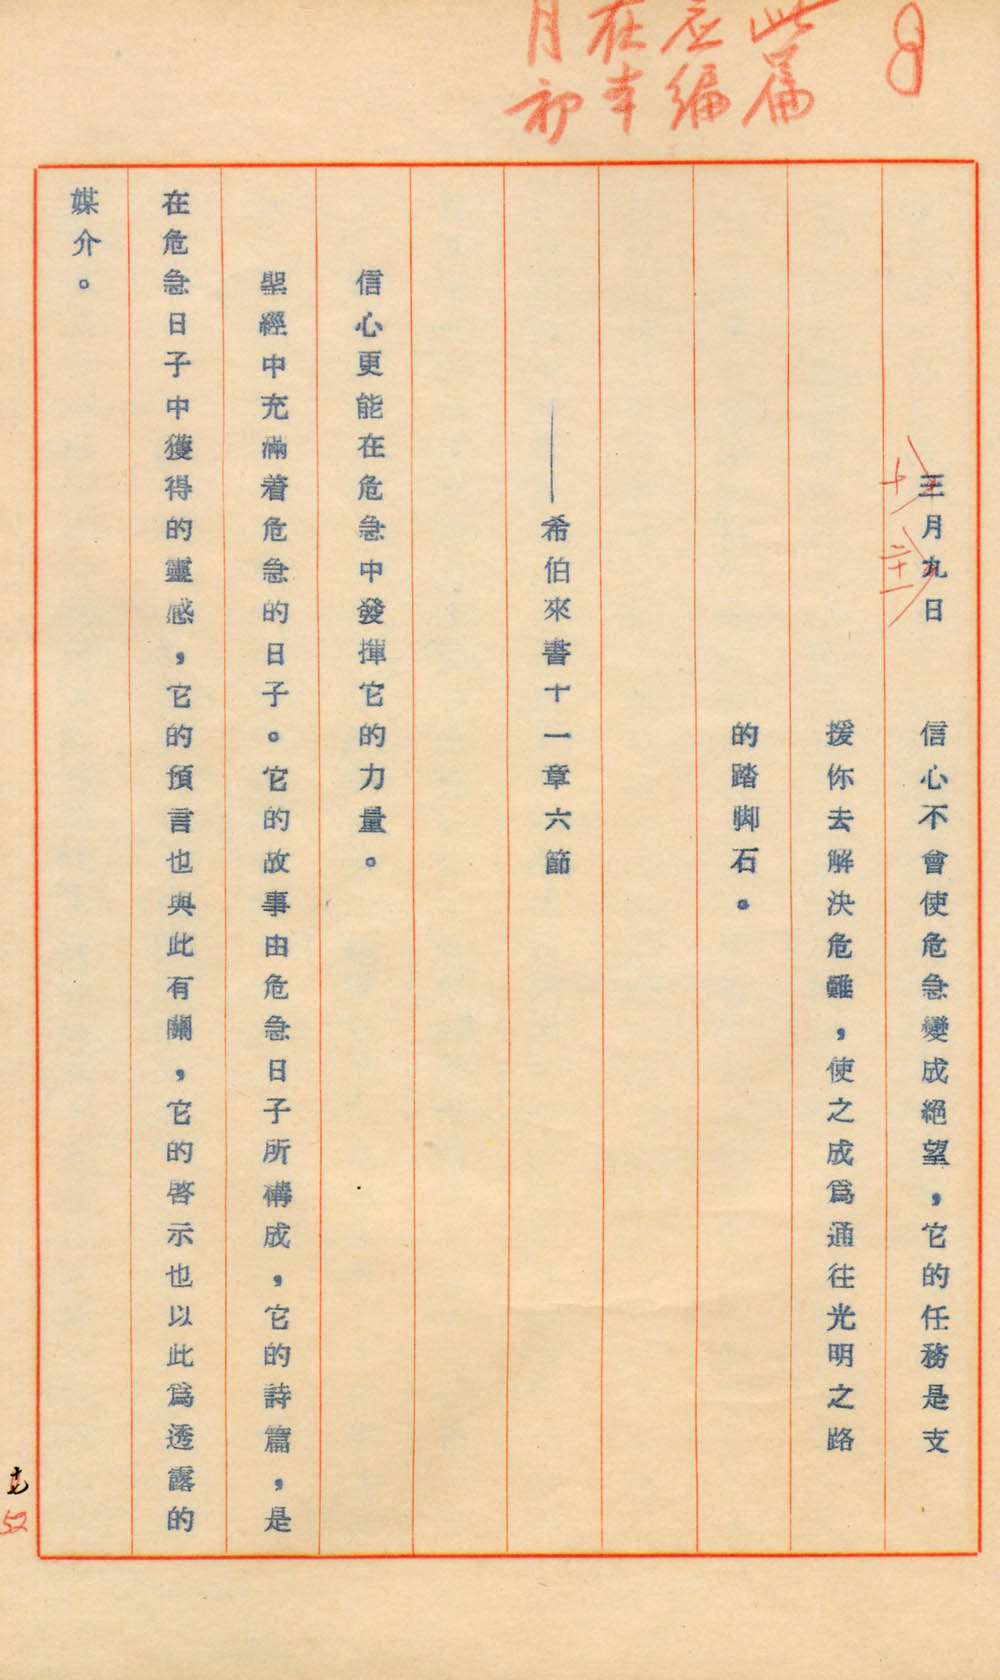 此篇
應編
在本
月初
三月九日
十
二十一
信心不會使危急變成絕望，它的任務是支
援你去解決危難，使之成爲通往光明之路
的踏脚石。
——希伯來書十一章六節
信心更能在危急中發揮它的力量。
聖經中充滿着危急的日子。它的故事由危急日子所構成，它的詩篇，是
在危急日子中獲得的靈感，它的預言也與此有關，它的啓示也以此爲透露的
媒介。
52